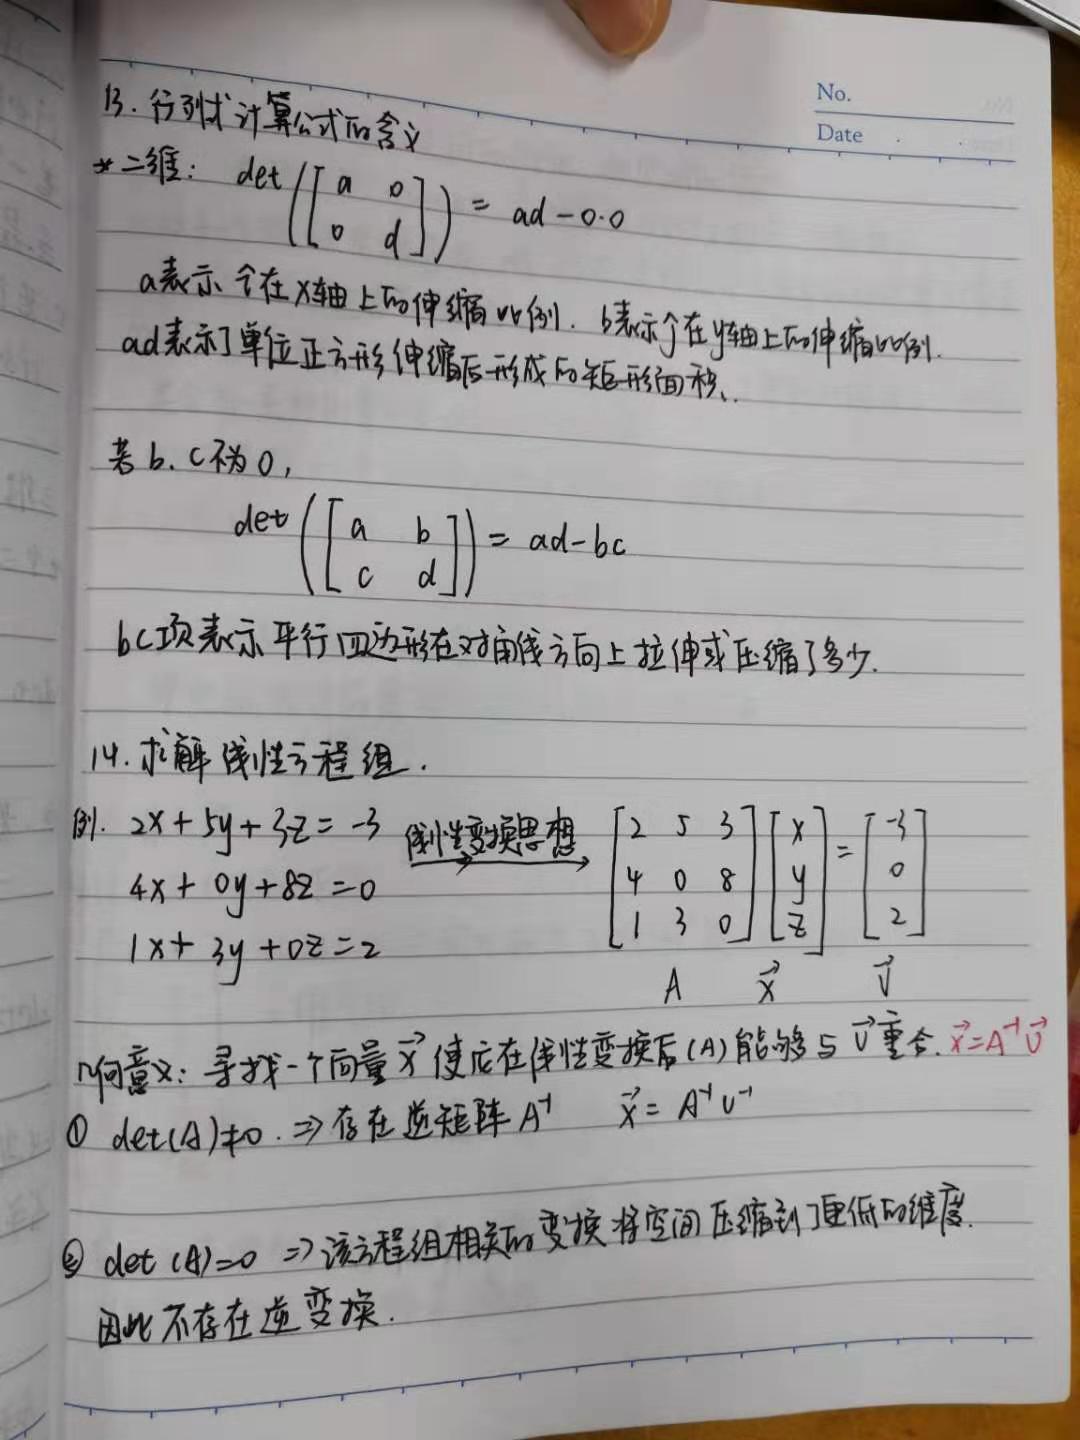 No.
Date
13. 行列式计算公式的含义
* 二维: det([a 0
0 d]) = ad - 0·0
a表示 î在x轴上的伸缩比例. b表示ĵ在y轴上的伸缩比例.
ad表示了单位正方形伸缩后形成的矩形面积.
若 b. c不为0,
det([a b
c d]) = ad-bc
bc项表示平行四边形在对角线方向上拉伸或压缩了多少.
14. 求解线性方程组.
例. 2x+5y+3z=-3 线性变换思想 [2 5 3] [x] = [-3]
4x+0y+8z=0 [4 0 8] [y] [0]
1x+3y+0z=2 [1 3 0] [z] [2]
A x⃗ v⃗
几何意义: 寻找一个向量x⃗ 使应在线性变换后(A)能够与v⃗重合. x⃗=A⁻¹v⃗
① det(A)≠0. ⇒ 存在逆矩阵A⁻¹ x⃗= A⁻¹v⁻¹
② det(A)=0 ⇒ 该方程组相关的变换将空间压缩到了更低的维度.
因此不存在逆变换.